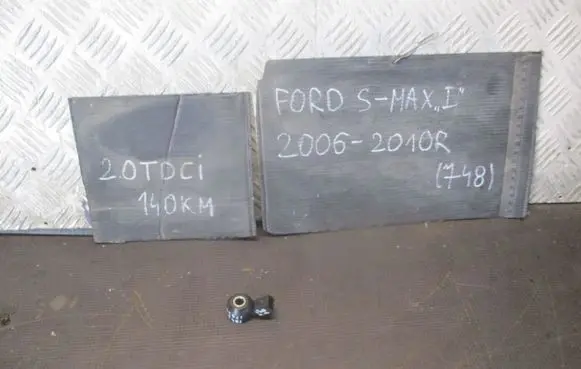 2.0TDCi
140KM
FORD S-MAX „I"
2006-2010R
(748)